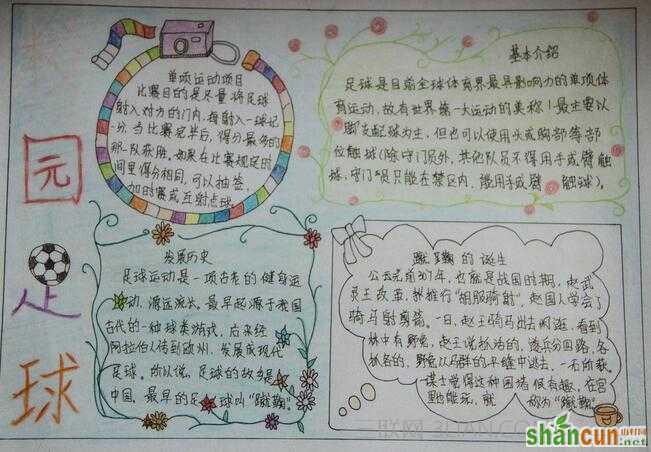 园
足
球
单项运动项目
比赛目的是尽量将足球
射入对方的门内,每射入一球记
一分,当比赛完毕后,得分最多的
那一队获胜。如果在比赛规定时
间里得分相同,可以抽签,
加时赛或互射点球
基本介绍
足球是目前全球体育界最具影响力的单项体
育运动,故有世界第一大运动的美称!最主要以
脚支配球为主,但也可以使用头或胸部等部
位触球(除守门员外,其他队员不得用手或臂触
球,守门员只能在禁区内,能用手或臂触球)。
发展历史
足球运动是一项古老的健身运
动,源远流长,最早起源于我国
古代的一种球类游戏,后来经
阿拉伯人传到欧洲,发展成现代
足球。所以说,足球的故乡是
中国。最早的足球叫“蹴鞠”。
蹴鞠的诞生
公元元前307年,也就是战国时期,赵武
灵王改革,就推行“胡服骑射”,赵国人学会了
骑马射剪箭。一日,赵王骑马出去闲逛,看到
林中有野兔,赵王说抓活的,遂兵分四路,各
,野兔从马群的 缝中逃去,一无所获。
谋士觉得这种围堵很有趣,在宫
里 ,就 称为“蹴鞠”。
shancun
山村网
.net